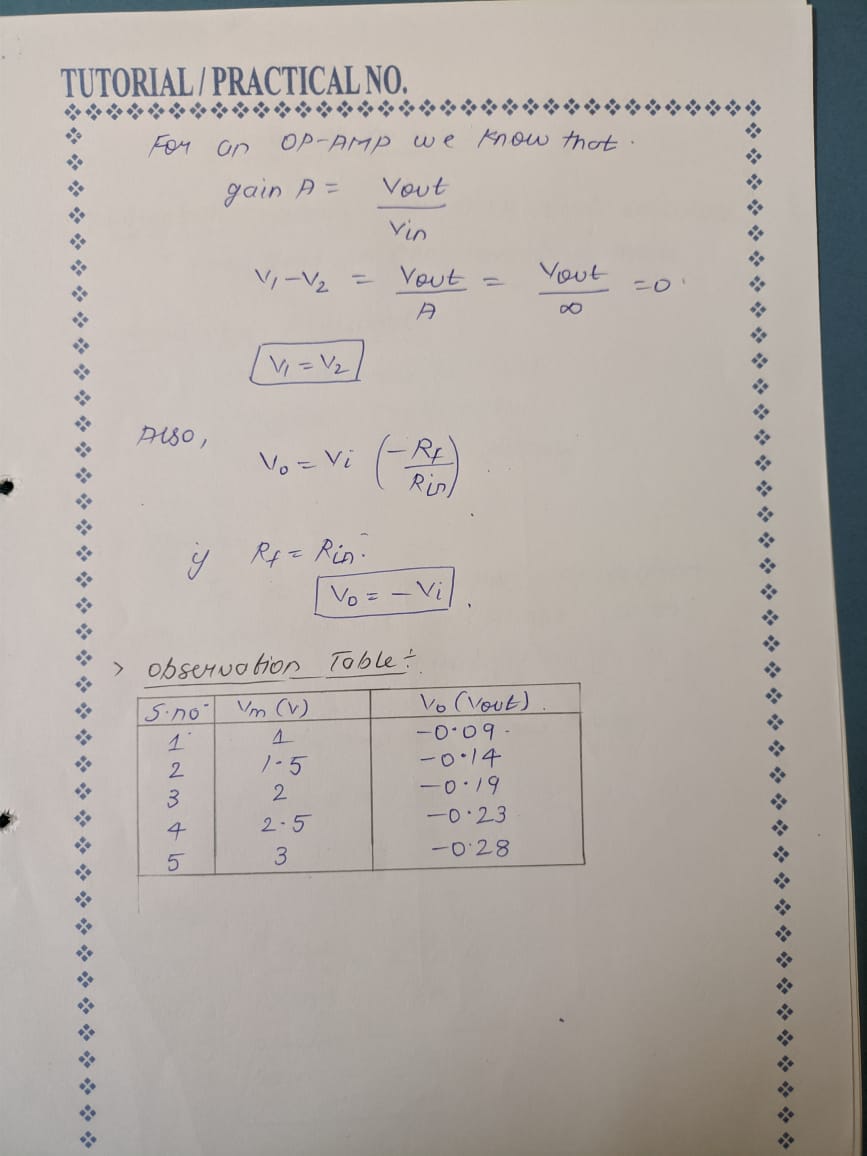 TUTORIAL / PRACTICAL NO.
For an OP-AMP we know that.
gain A = Vout / Vin
V₁ - V₂ = Vout / A = Vout / ∞ = 0
V₁ = V₂
Also,
V₀ = Vi (-Rf / Rin)
if Rf = Rin.
V₀ = - Vi.
> Observation Table :-
S.no Vm (V) V₀ (Vout).
1 1 -0.09
2 1.5 -0.14
3 2 -0.19
4 2.5 -0.23
5 3 -0.28